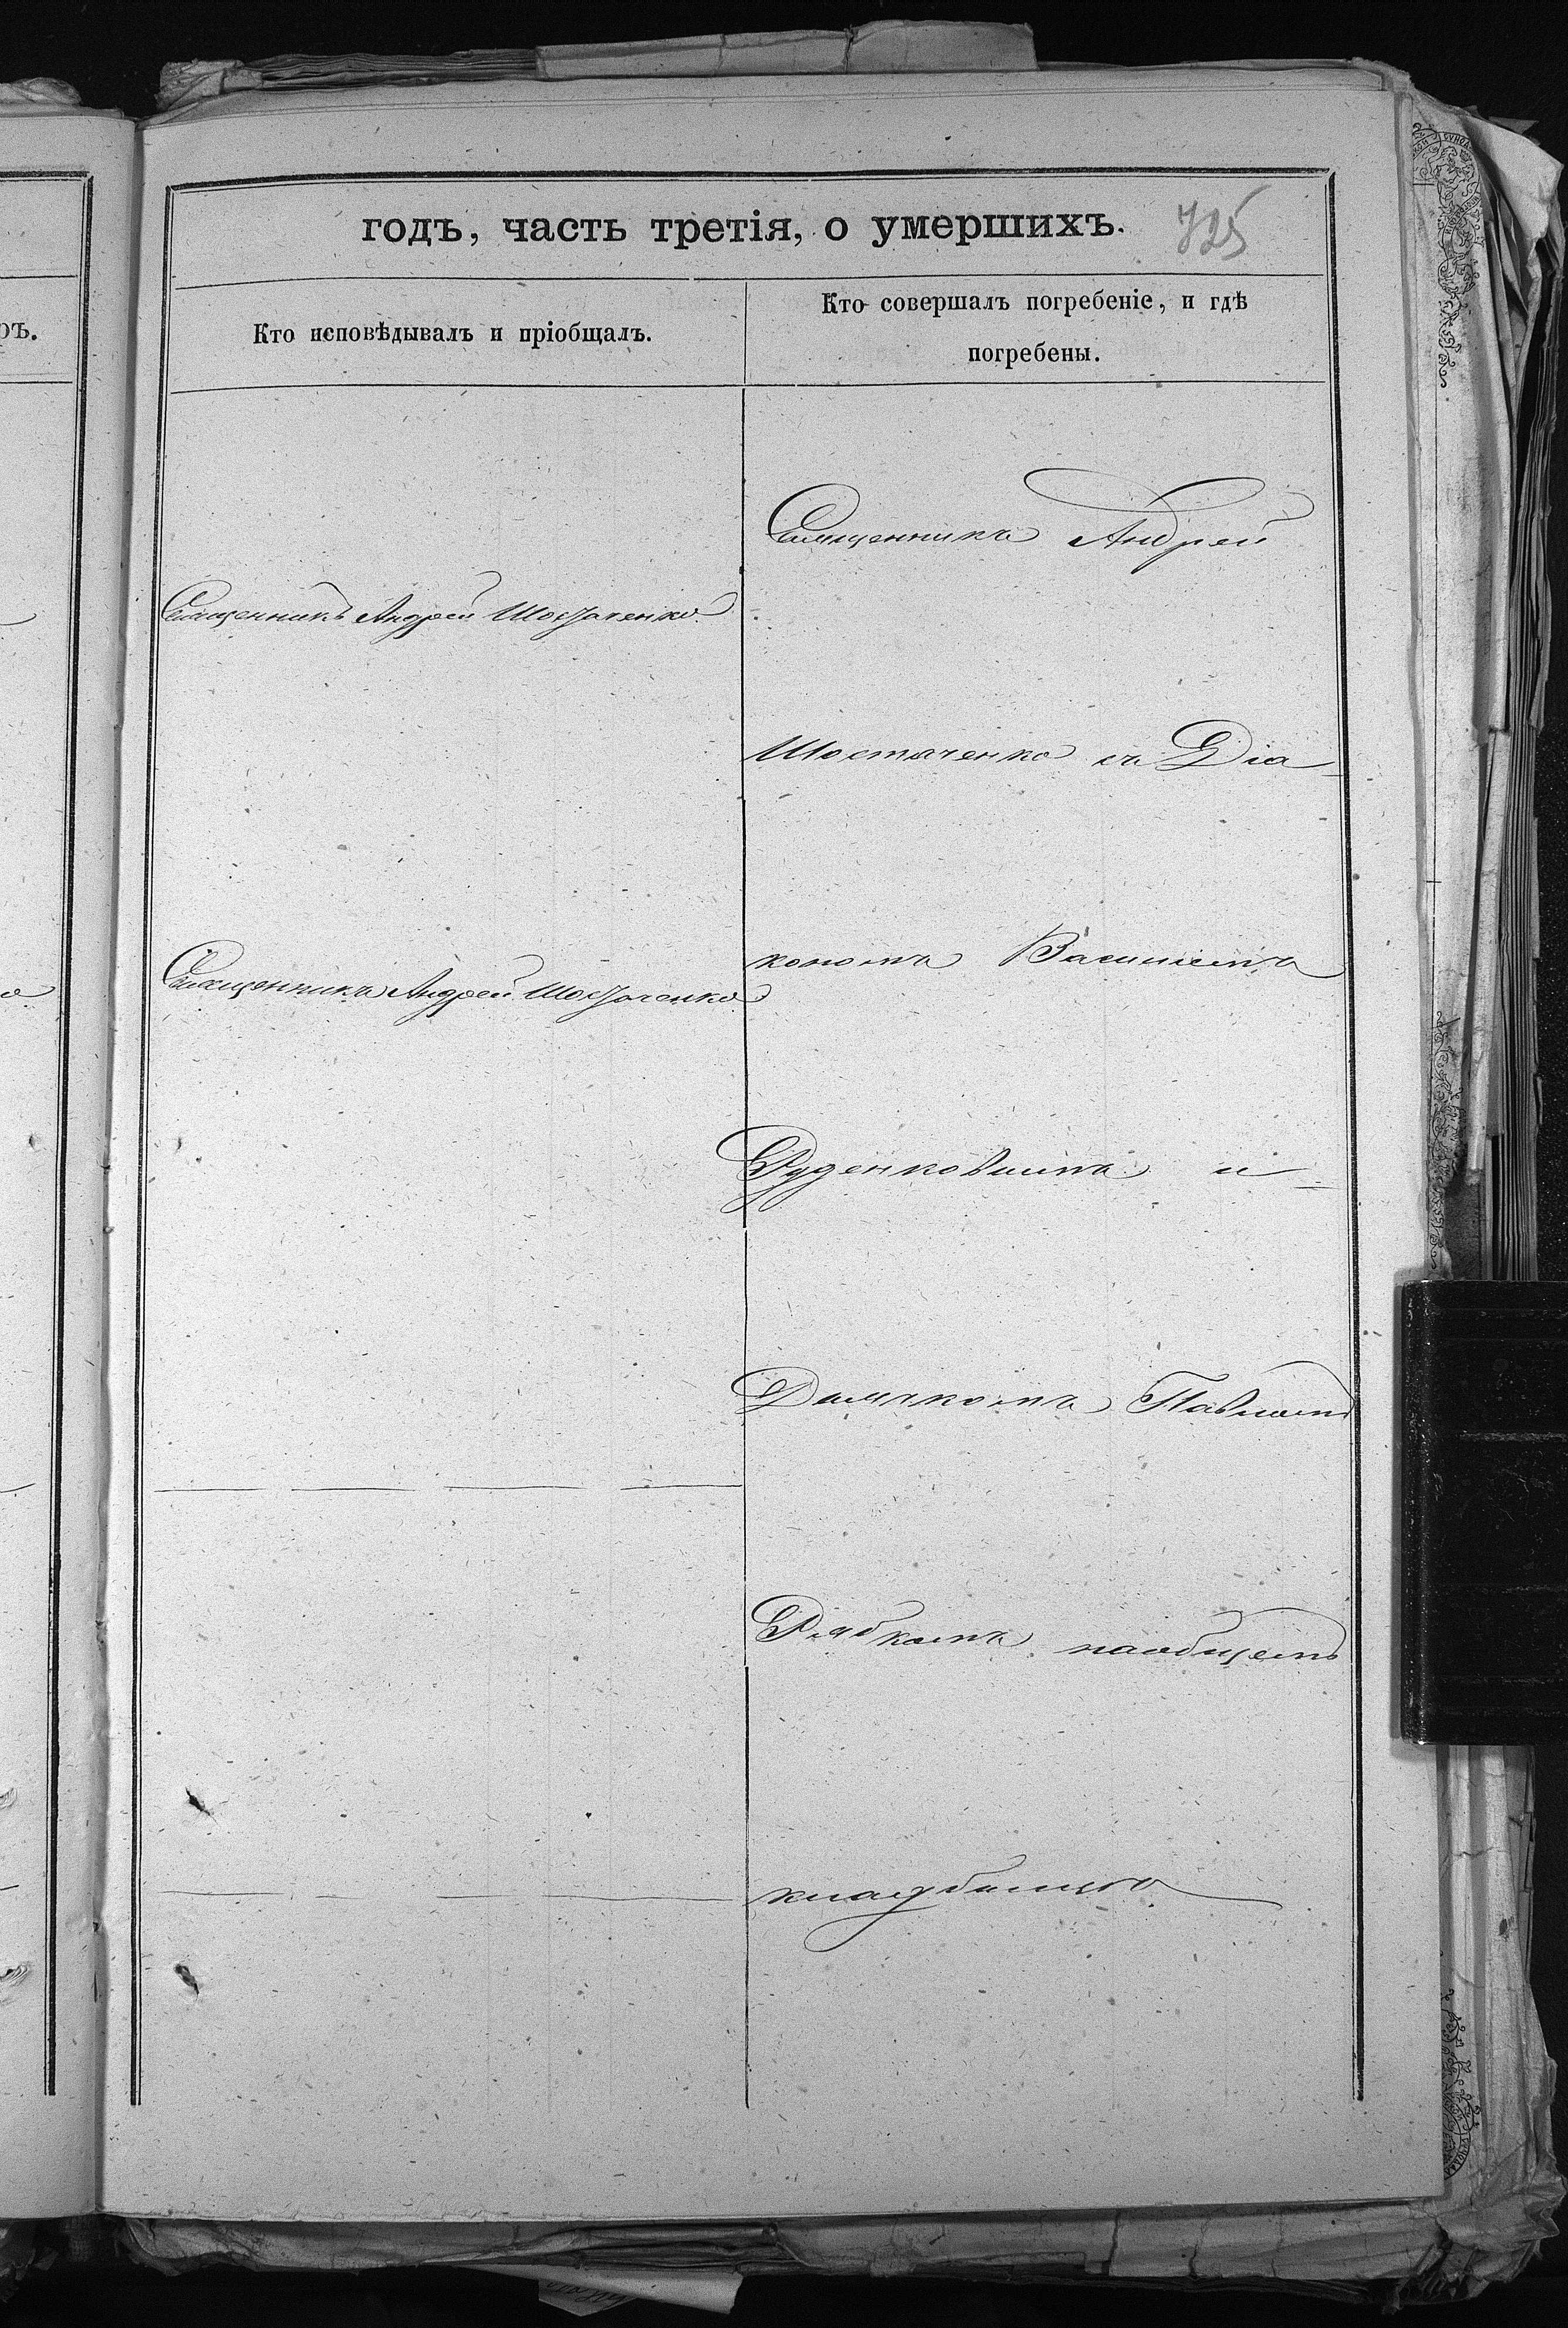 годъ, часть третія, о умершихъ.
725
Кто исповѣдывалъ и пріобщалъ.
Кто совершалъ погребеніе, и гдѣ
погребены.
Священникъ Андрей Шостаченко
Священникъ Андрей Шостаченко
Священникъ Андрей
Шостаченко съ Діа-
кономъ Василіемъ
Руденковимъ и
Дьячкомъ Павломъ
Рябкомъ наобщемъ
кладбищѣ
ръ.